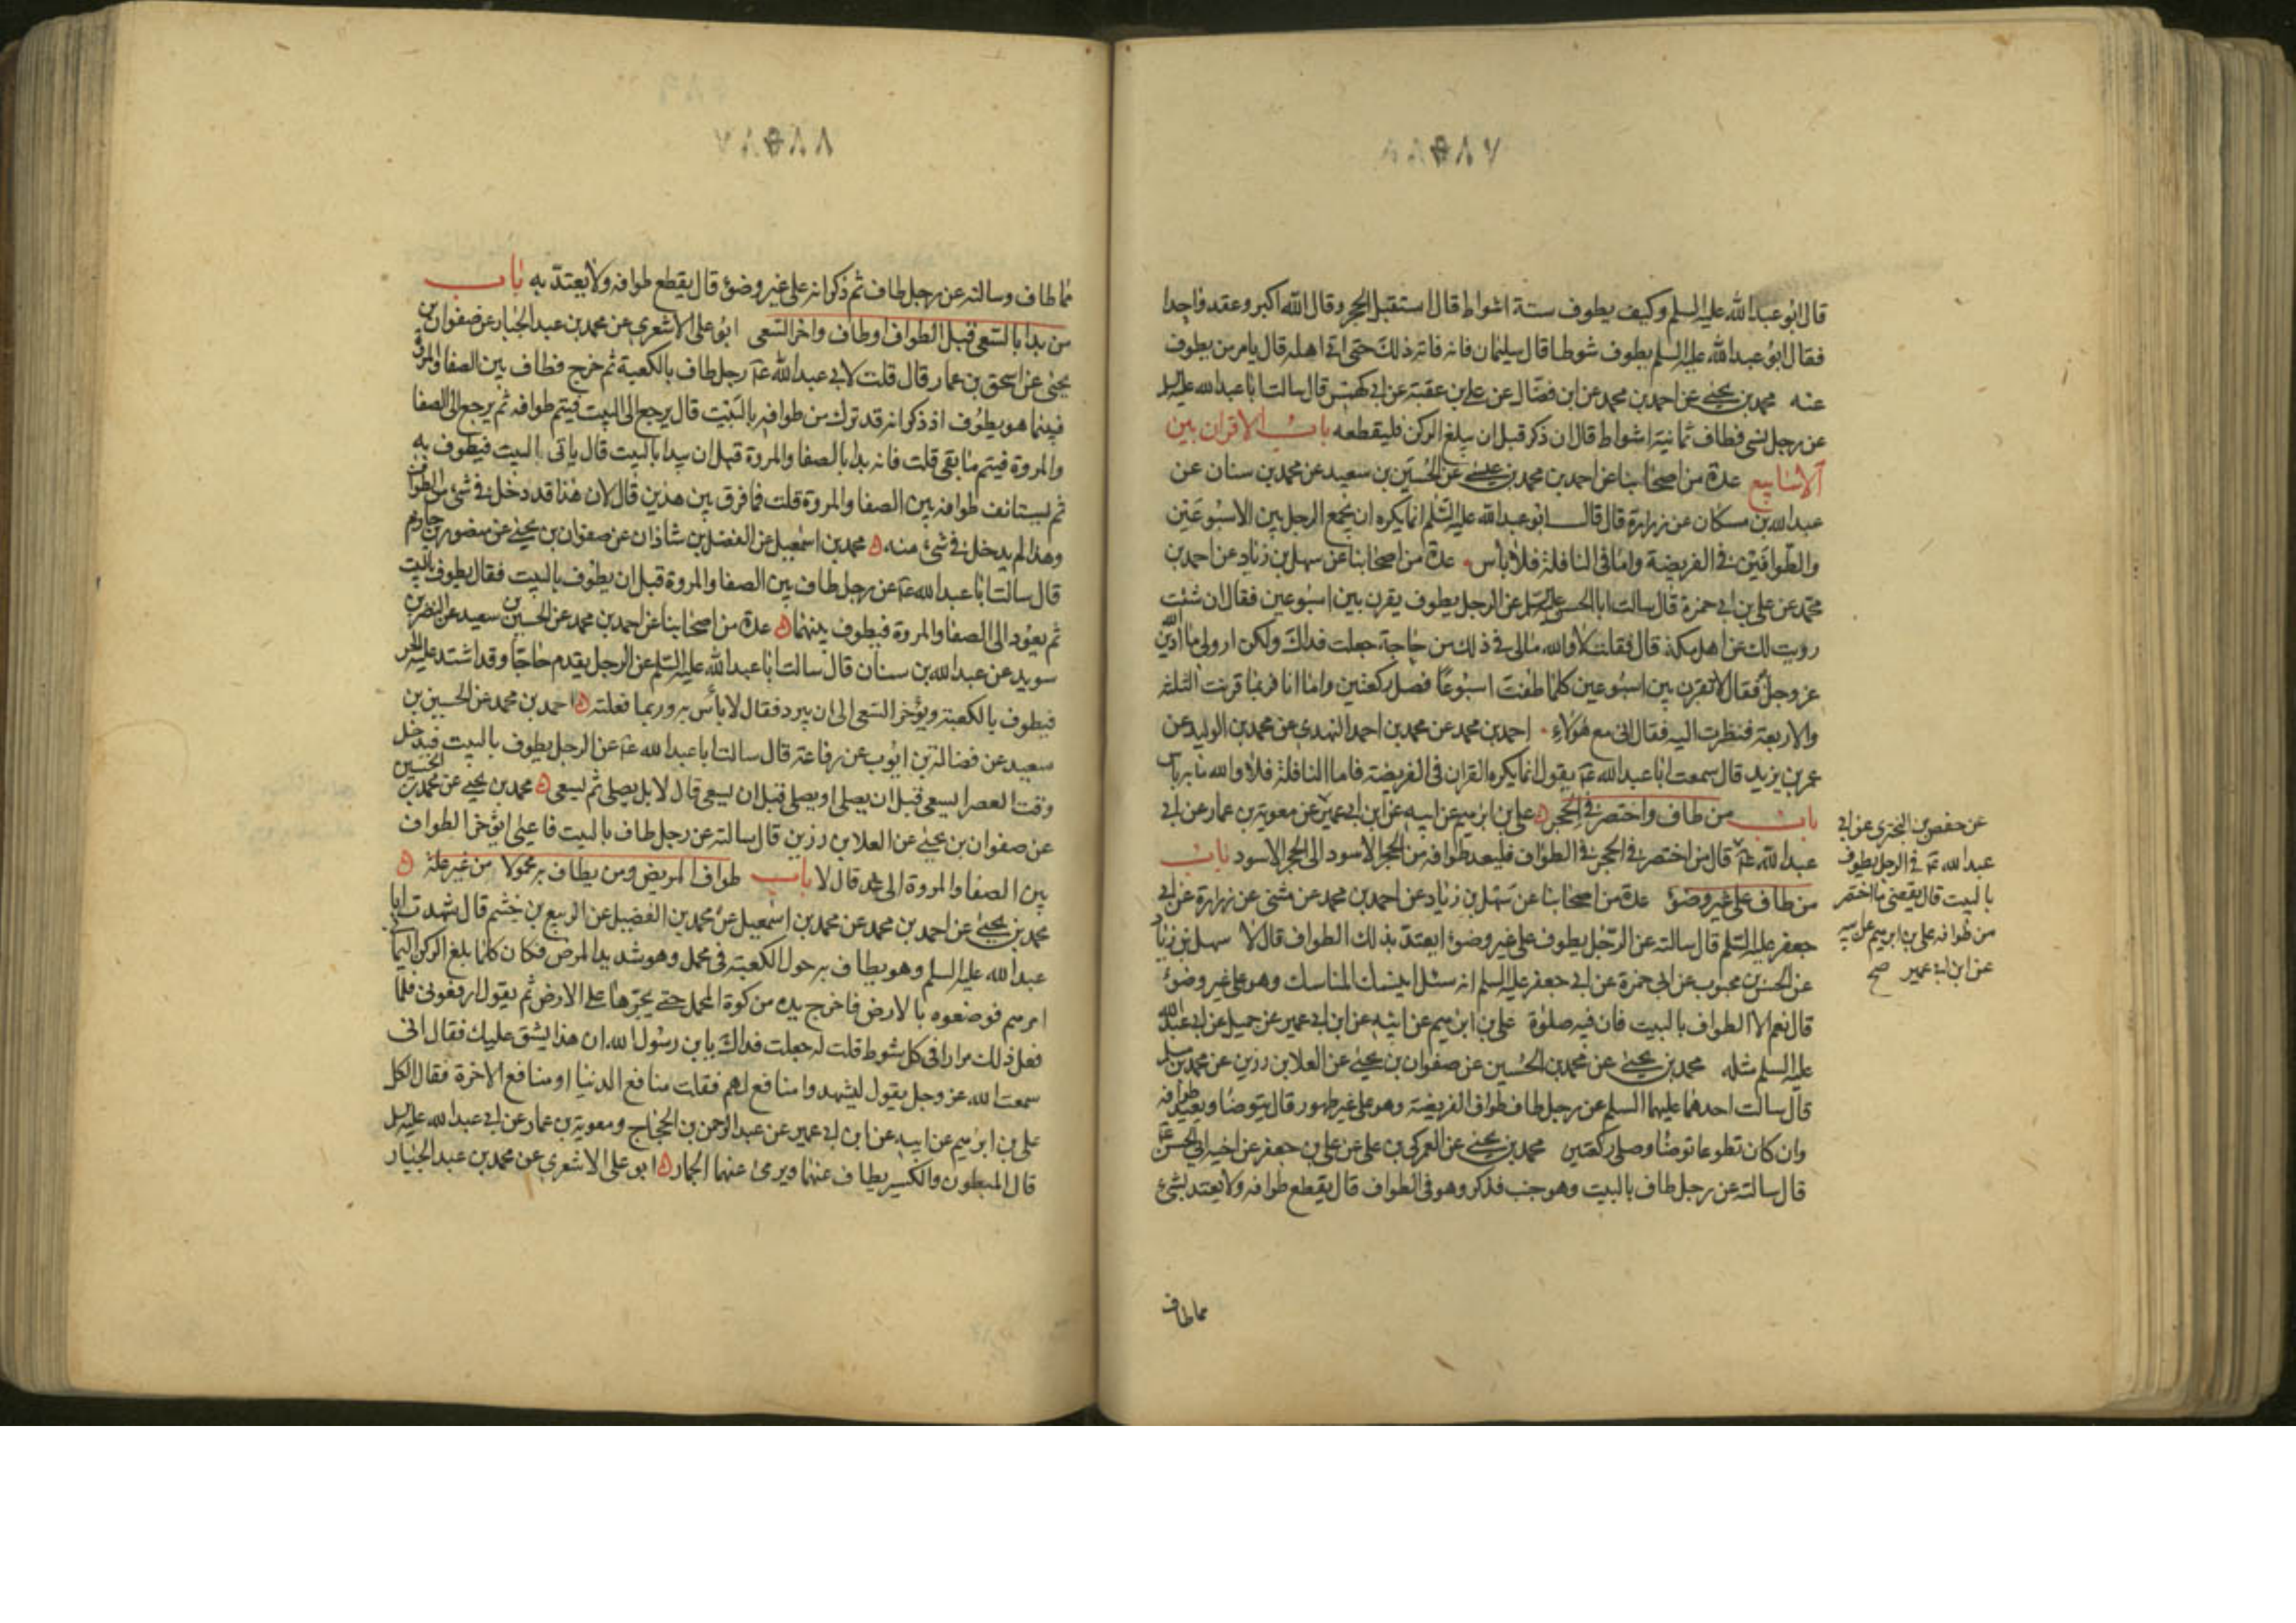 قال ابو عبد الله عليه السلم وكيف يطوف ستة اشواط قال استقبل الحجر وقال الله اكبر وعقد واحدا
فقال ابو عبد الله عليه السلم يطوف شوطا قال سليمان فانه فاته ذلك حتى اتى اهله قال يامر من يطوف
عنه محمد بن يحيى عن احمد بن محمد عن ابن فضال عن على بن عقبة عن ابى كهمس قال سالت ابا عبد الله عليه السلم
عن رجل نسى فطاف ثمانية اشواط قال ان ذكر قبل ان يبلغ الركن فليقطعه باب الاقران بين
الاسابيع عدة من اصحابنا عن احمد بن محمد بن عيسى عن الحسين بن سعيد عن محمد بن سنان عن
عبد الله بن مسكان عن زرارة قال قال ابو عبد الله عليه السلم انما يكره ان يجمع الرجل بين الاسبوعين
والطوافين فى الفريضة واما فى النافلة فلا باس عدة من اصحابنا عن سهل بن زياد عن احمد بن
محمد عن على بن ابى حمزة قال سالت ابا الحسن عليه السلم عن الرجل يطوف يقرن بين اسبوعين فقال ان شئت
رويت لك عن اهل مكة قال فقلت لا والله مالى فى ذلك من حاجة جعلت فداك ولكن ارو لى ما ادين الله
عز وجل فقال لا تقرن بين اسبوعين كلما طفت اسبوعا فصل ركعتين واما انا فربما قرنت الثلثه
والاربعة فنظرت اليه فقال انى مع هولاء احمد بن محمد عن محمد بن احمد النهدى عن محمد بن الوليد عن
عمر بن يزيد قال سمعت ابا عبد الله عه يقول انما يكره القران فى الفريضة فاما النافلة فلا والله ما به باس
باب من طاف واختصر فى الحجر على بن ابرهيم عن ابيه عن ابن ابى عمير عن معوية بن عمار عن ابى
عبد الله عه قال من اختصر فى الحجر فى الطواف فليعد طوافه من الحجر الاسود الى الحجر الاسود باب
من طاف على غير وضوء عدة من اصحابنا عن سهل بن زياد عن احمد بن محمد عن مثنى عن زرارة عن ابى
جعفر عليه السلم قال سالته عن الرجل يطوف على غير وضوء ايعتد بذلك الطواف قال لا سهل بن زياد
عن الحسن بن محبوب عن ابى حمزة عن ابى جعفر عليه السلم انه سئل اينسك المناسك وهو على غير وضوء
قال نعم الا الطواف بالبيت فان فيه صلوة على بن ابرهيم عن ابيه عن ابن ابى عمير عن جميل عن ابى عبد الله
عليه السلم مثله محمد بن يحيى عن محمد بن الحسين عن صفوان بن يحيى عن العلا بن رزين عن محمد بن مسلم
قال سالت احدهما عليهما السلم عن رجل طاف طواف الفريضة وهو على غير طهور قال يتوضا ويعيد طوافه
وان كان تطوعا توضا وصلى ركعتين محمد بن يحيى عن العمركى بن على عن على بن جعفر عن اخيه ابى الحسن عه
قال سالته عن رجل طاف بالبيت وهو جنب فذكر وهو فى الطواف قال يقطع طوافه ولا يعتد بشىء
مما طاف
عن حفص بن البخترى عن ابى
عبد الله عه فى الرجل يطوف
بالبيت قال يقضى ما اختصر
من طوافه على بن ابرهيم عن ابيه
عن ابن ابى عمير صح
مما طاف وسالته عن رجل طاف ثم ذكر انه على غير وضوء قال يقطع طوافه ولا يعتد به باب
من بدا بالسعى قبل الطواف او طاف واخر السعى ابو على الاشعرى عن محمد بن عبد الجبار عن صفوان بن
يحيى عن اسحق بن عمار قال قلت لابى عبد الله عه رجل طاف بالكعبة ثم خرج فطاف بين الصفا والمروة
فبينما هو يطوف اذ ذكر انه قد ترك من طوافه بالبيت قال يرجع الى البيت فيتم طوافه ثم يرجع الى الصفا
والمروة فيتم ما بقى قلت فانه بدا بالصفا والمروة قبل ان يبدا بالبيت قال ياتى البيت فيطوف به
ثم يستانف طوافه بين الصفا والمروة قلت فما فرق بين هذين قال لان هذا قد دخل فى شىء من الطواف
وهذا لم يدخل فى شىء منه محمد بن اسمعيل عن الفضل بن شاذان عن صفوان بن يحيى عن منصور بن حازم
قال سالت ابا عبد الله عه عن رجل طاف بين الصفا والمروة قبل ان يطوف بالبيت فقال يطوف بالبيت
ثم يعود الى الصفا والمروة فيطوف بينهما عدة من اصحابنا عن احمد بن محمد عن الحسين بن سعيد عن النضر بن
سويد عن عبد الله بن سنان قال سالت ابا عبد الله عليه السلم عن الرجل يقدم حاجا وقد اشتد عليه الحر
فيطوف بالكعبة ويؤخر السعى الى ان يبرد فقال لا باس به وربما فعلته احمد بن محمد عن الحسين بن
سعيد عن فضالة بن ايوب عن رفاعة قال سالت ابا عبد الله عه عن الرجل يطوف بالبيت فيدخل
وقت العصر ايسعى قبل ان يصلى او يصلى قبل ان يسعى قال لا بل يصلى ثم يسعى محمد بن يحيى عن محمد بن الحسين
عن صفوان بن يحيى عن العلا بن رزين قال سالته عن رجل طاف بالبيت فاعيى ايؤخر الطواف
بين الصفا والمروة الى غد قال لا باب طواف المريض ومن يطاف به محمولا من غير علة
محمد بن يحيى عن احمد بن محمد عن محمد بن اسمعيل عن محمد بن الفضيل عن الربيع بن خثيم قال شهدت ابا
عبد الله عليه السلم وهو يطاف به حول الكعبة فى محمل وهو شديد المرض فكان كلما بلغ الركن اليمانى
امرهم فوضعوه بالارض فاخرج يده من كوة المحمل حتى يجرها على الارض ثم يقول ارفعونى فلما
فعل ذلك مرارا فى كل شوط قلت له جعلت فداك يابن رسول الله ان هذا يشق عليك فقال انى
سمعت الله عز وجل يقول ليشهدوا منافع لهم فقلت منافع الدنيا او منافع الاخرة فقال الكل
على بن ابرهيم عن ابيه عن ابن ابى عمير عن عبد الرحمن بن الحجاج ومعوية بن عمار عن ابى عبد الله عليه السلم
قال المبطون والكسير يطاف عنهما ويرمى عنهما الجمار ابو على الاشعرى عن محمد بن عبد الجبار